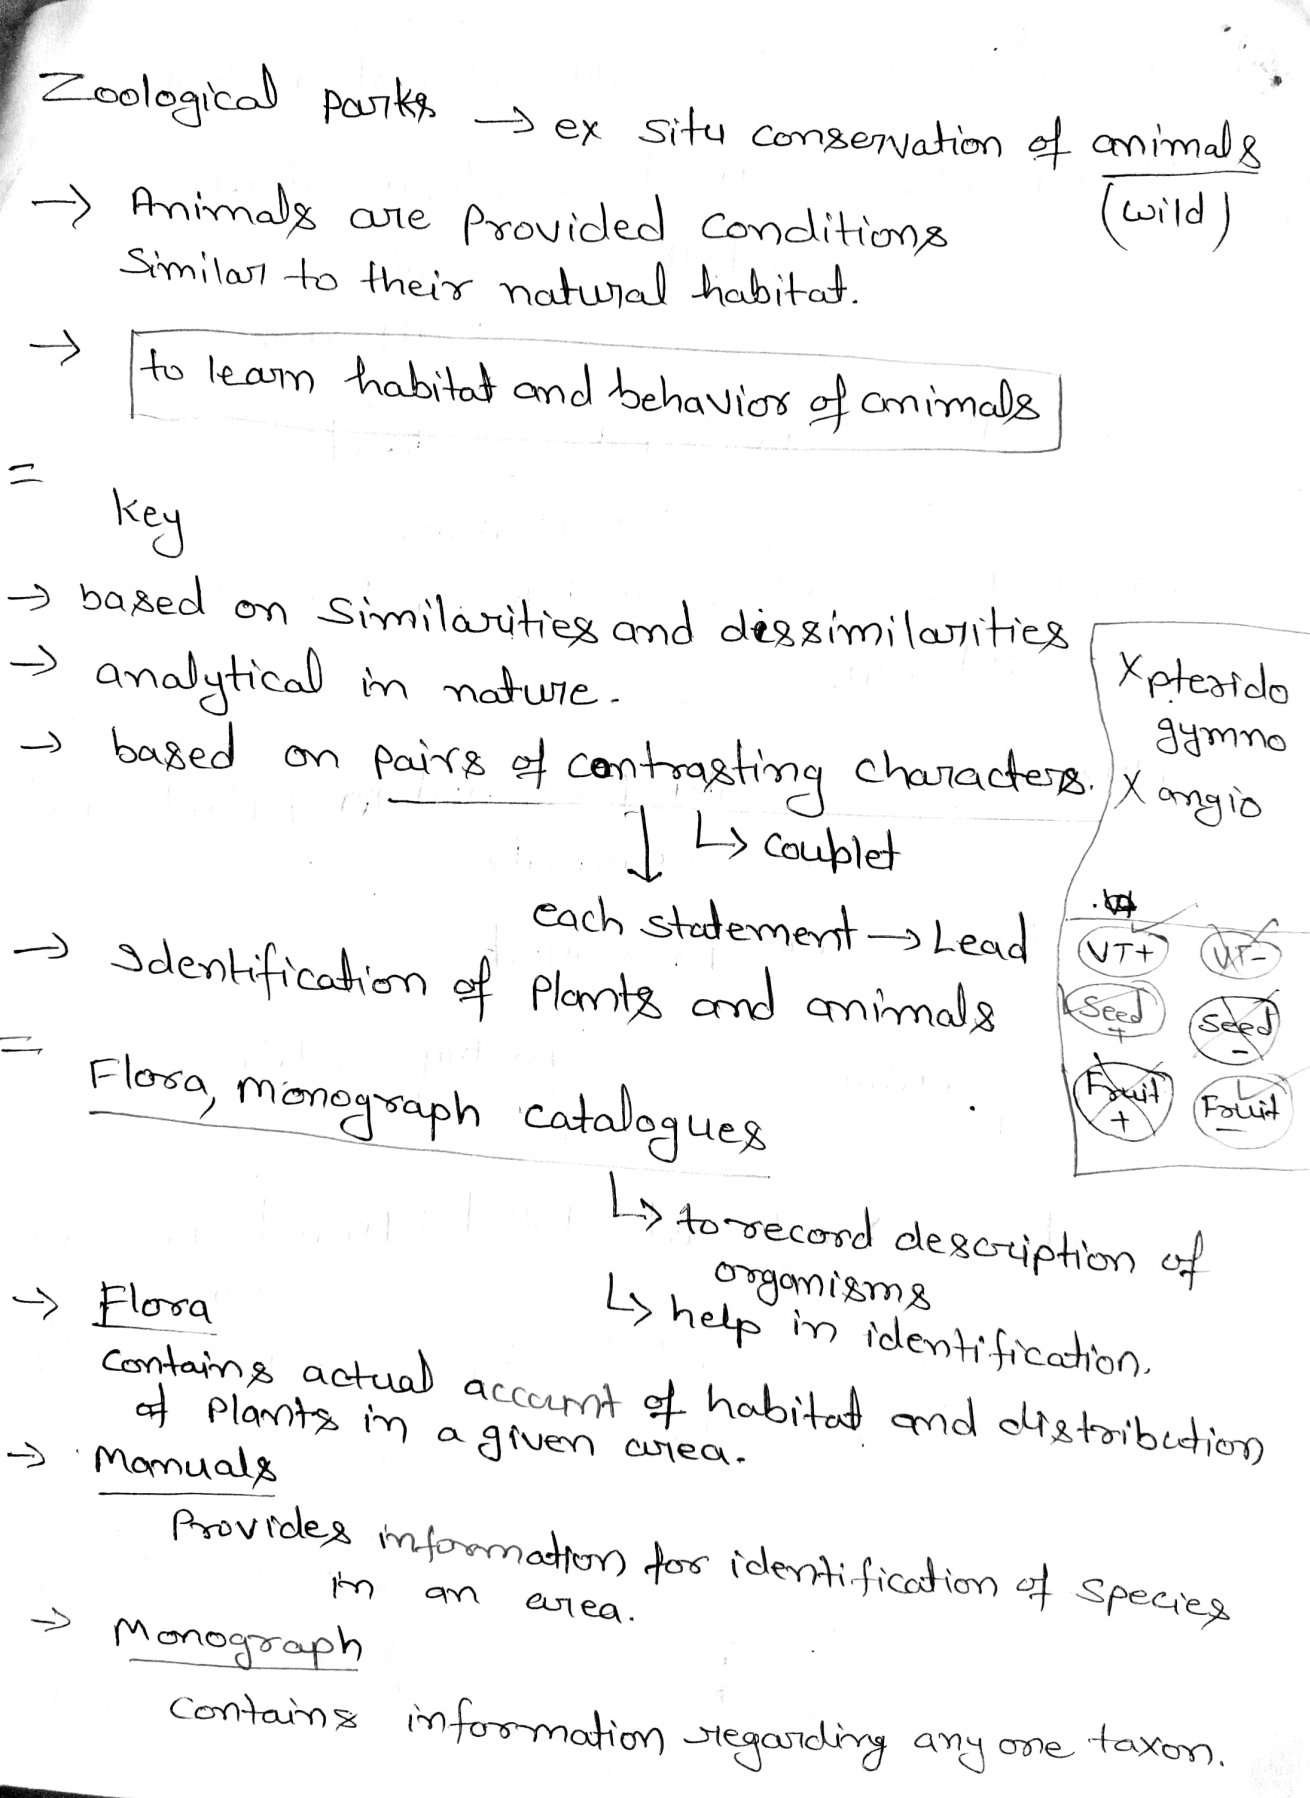 Zoological parks → ex situ conservation of animals
(wild)
→ Animals are provided conditions
similar to their natural habitat.
→ to learn habitat and behavior of animals
=
key
→ based on similarities and dissimilarities
→ analytical in nature.
→ based on pairs of contrasting characters.
↳ couplet
↓
each statement → Lead
→ Identification of plants and animals
X pterido
gymno
X angio
VT+ VT-
Seed + Seed -
Fruit + Fruit -
=
Flora, monograph catalogues
↳ to record description of
organisms
↳ help in identification.
→ Flora
contains actual account of habitat and distribution
of plants in a given area.
→ Manuals
Provides information for identification of species
in an area.
→ Monograph
contains information regarding any one taxon.